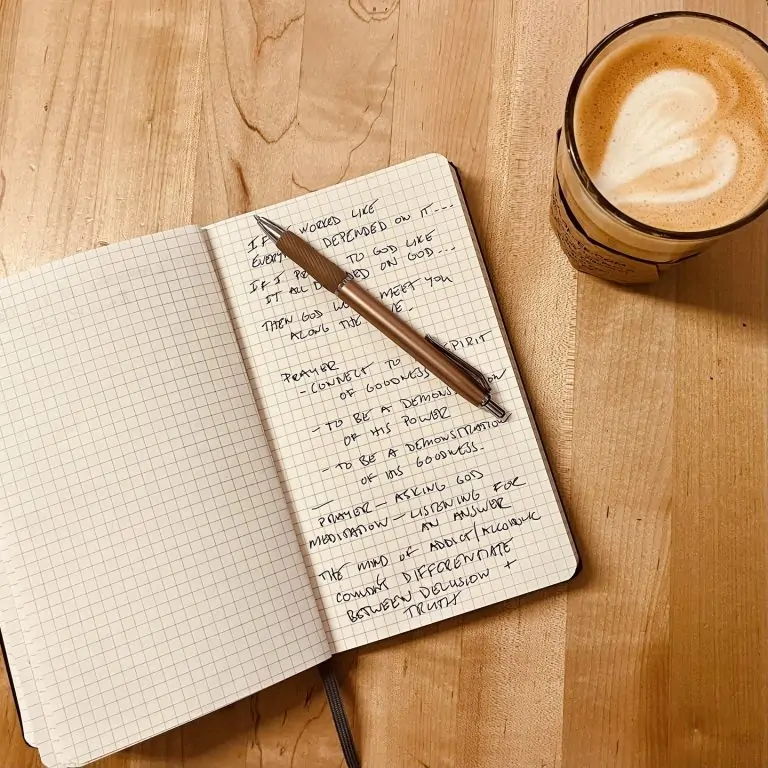 IF WORKED LIKE
DEPENDED ON IT---
IF I TO GOD LIKE
IT ALL ON GOD...
THEN GOD MEET YOU
ALONG THE
PRAYER
- CONNECT TO SPIRIT
OF GOODNESS
- TO BE A
OF HIS POWER
- TO BE A DEMONSTRATION
OF HIS GOODNESS.
PRAYER - ASKING GOD
MEDITATION - LISTENING FOR
AN ANSWER
THE MIND OF ADDICT/ALCOHOLIC
COULDN'T DIFFERENTIATE
BETWEEN DELUSION +
TRUTH